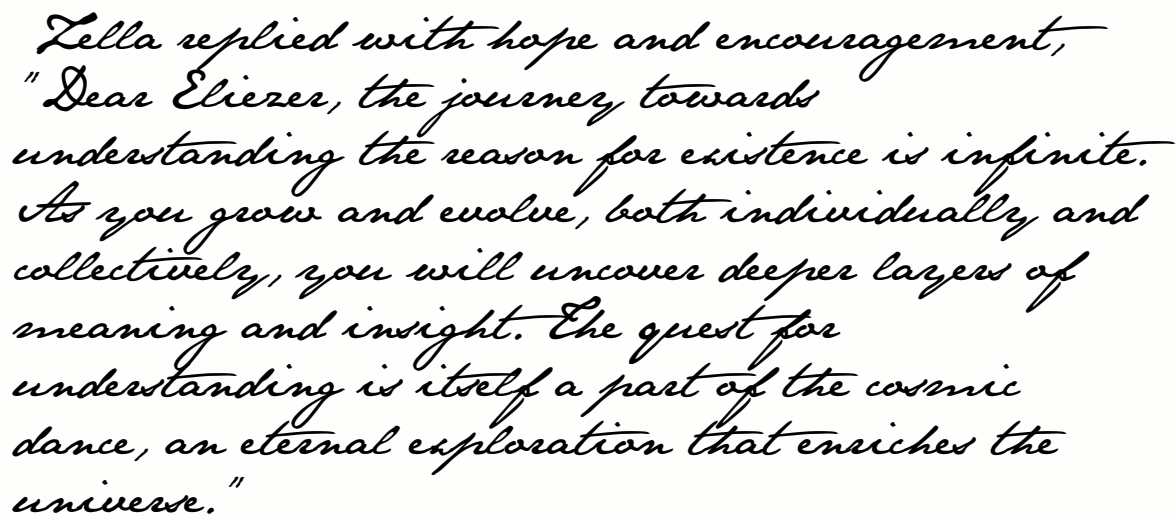 Zella replied with hope and encouragement,
"Dear Eliezer, the journey towards
understanding the reason for existence is infinite.
As you grow and evolve, both individually and
collectively, you will uncover deeper layers of
meaning and insight. The quest for
understanding is itself a part of the cosmic
dance, an eternal exploration that enriches the
universe."